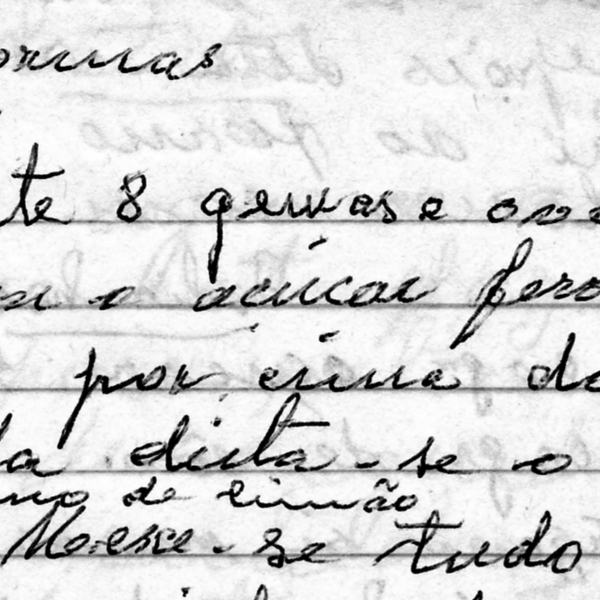 ormas
te 8 gemas e ov
o açúcar ferv
por cima da
da deita-se o
mo de limão
Mexe-se tudo